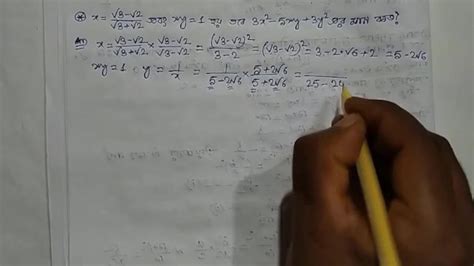 * x = √3-√2/√3+√2 এবং xy = 1 হয় তবে 3x² - 5xy + 3y² এর মান কত?
x = √3-√2/√3+√2 × √3-√2/√3-√2 = (√3-√2)²/3-2 = (√3-√2)² = 3-2·√6+2 = 5-2√6
xy = 1 y = 1/x = 1/5-2√6 × 5+2√6/5+2√6 = /25-24